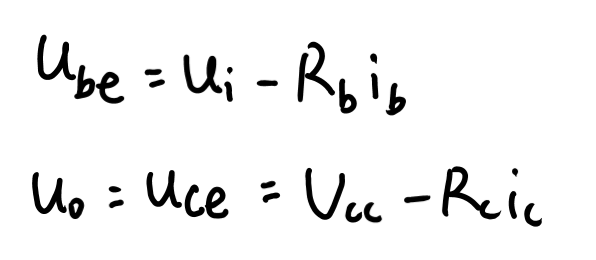 U_be = u_i - R_b i_b
u_o = u_ce = V_cc - R_c i_c